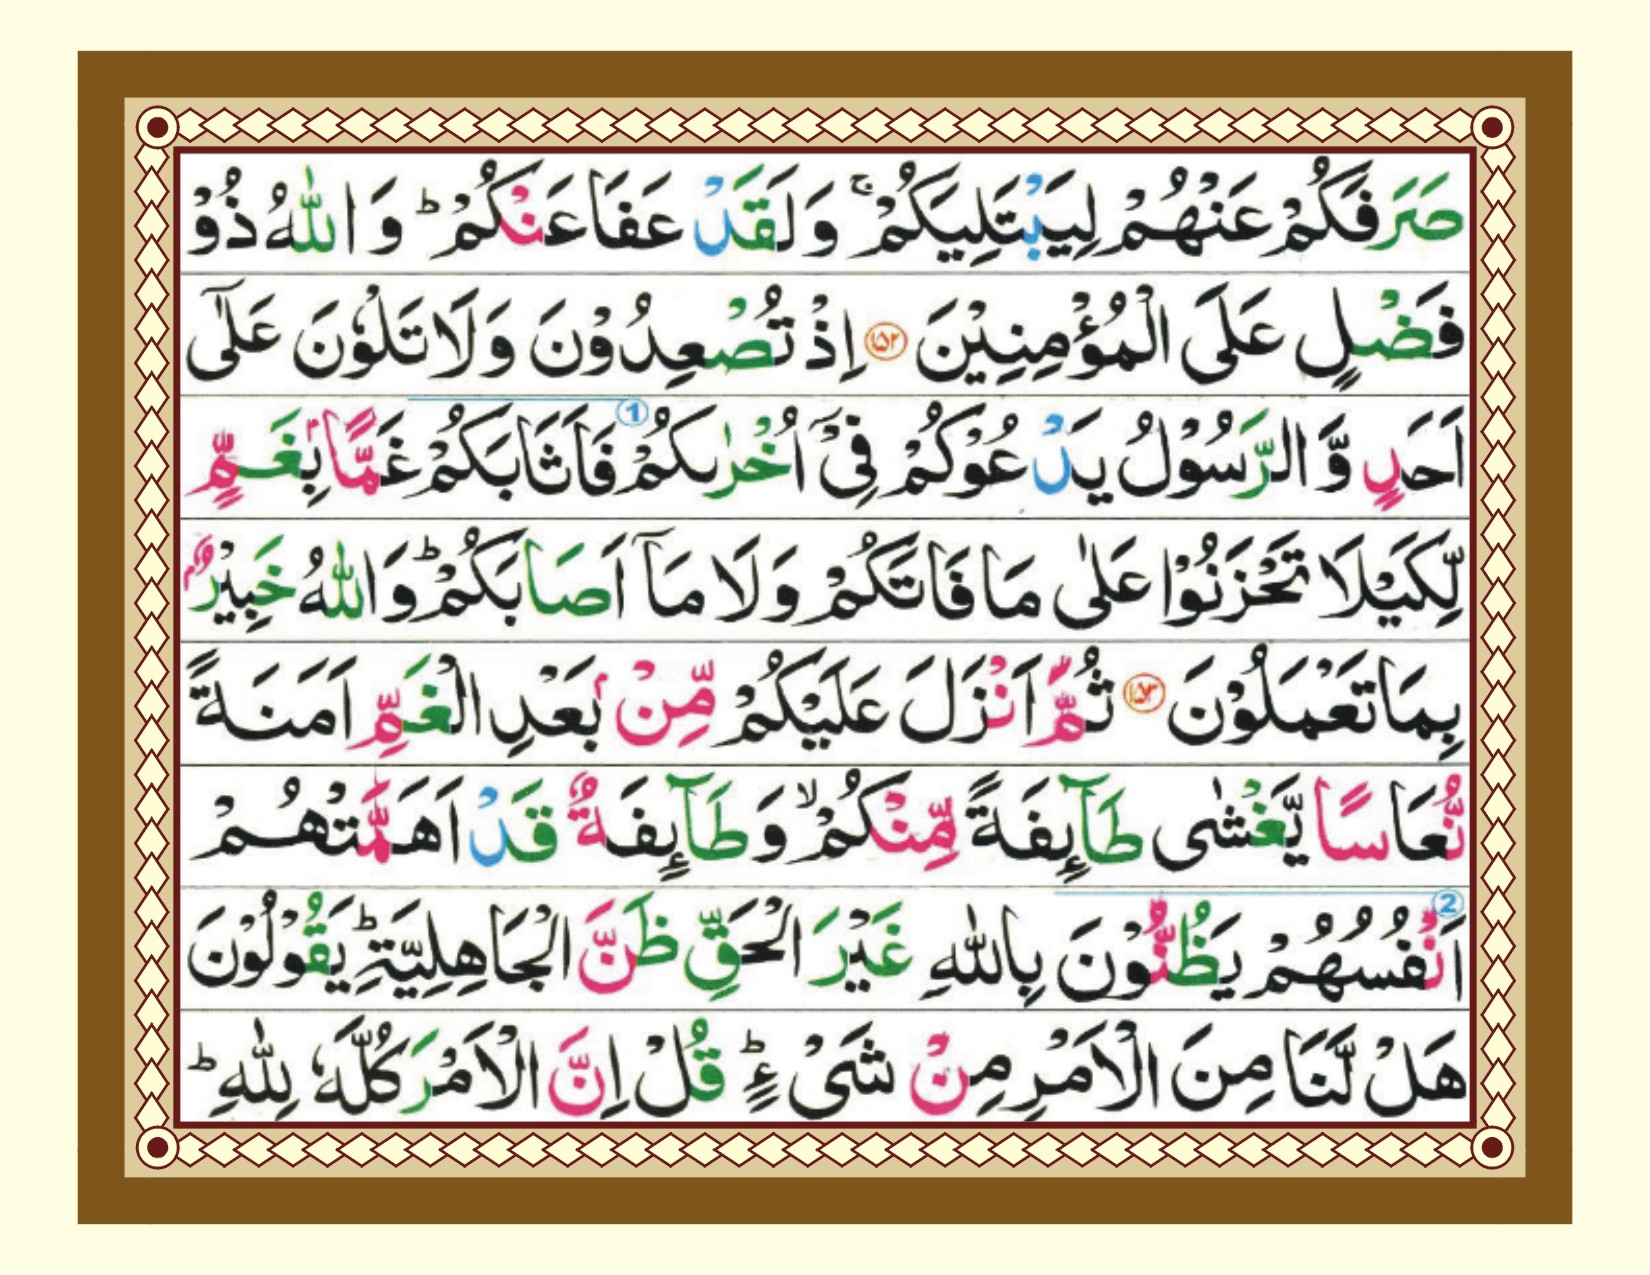 صَرَفَكُمْ عَنْهُمْ لِيَبْتَلِيَكُمْ ۚ وَلَقَدْ عَفَا عَنْكُمْ ؕ وَ اللّٰهُ ذُوْ
فَضْلٍ عَلَى الْمُؤْمِنِيْنَ ۝۱۵۲ اِذْ تُصْعِدُوْنَ وَلَا تَلْوٗنَ عَلٰٓى
اَحَدٍ وَّ الرَّسُوْلُ يَدْعُوْكُمْ فِىْۤ اُخْرٰىكُمْ فَاَثَابَكُمْ غَمًّاۢ بِغَمٍّ
①
لِّكَيْلَا تَحْزَنُوْا عَلٰى مَا فَاتَكُمْ وَلَا مَاۤ اَصَابَكُمْ ؕ وَاللّٰهُ خَبِيْرٌۢ
بِمَا تَعْمَلُوْنَ ۝۱۵۳ ثُمَّ اَنْزَلَ عَلَيْكُمْ مِّنْۢ بَعْدِ الْغَمِّ اَمَنَةً
نُّعَاسًا يَّغْشٰى طَآئِفَةً مِّنْكُمْ ۙ وَطَآئِفَةٌ قَدْ اَهَمَّتْهُمْ
②
اَنْفُسُهُمْ يَظُنُّوْنَ بِاللّٰهِ غَيْرَ الْحَقِّ ظَنَّ الْجَاهِلِيَّةِ ؕ يَقُوْلُوْنَ
هَلْ لَّنَا مِنَ الْاَمْرِ مِنْ شَىْءٍ ؕ قُلْ اِنَّ الْاَمْرَ كُلَّهٗ لِلّٰهِ ؕ